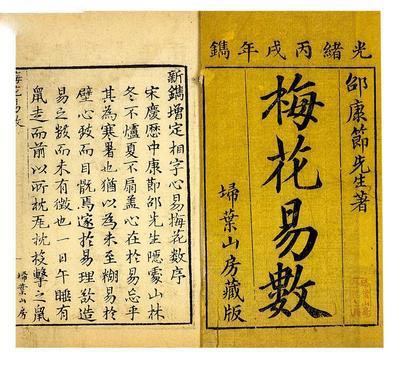 光緒丙戌年鐫
邵康節先生著
梅花易數
埽葉山房藏版
新鐫增定相字心易梅花數序
宋慶歷中康節邵先生隱處山林
冬不爐夏不扇蓋心在於易忘乎
其為寒暑也猶以為未至糊易於
壁心致而目翫焉邃於易理欲造
易之數而未有徵也一日午睡有
鼠走而前以所枕瓦枕投擊之鼠
梅花易數
一
埽葉山房